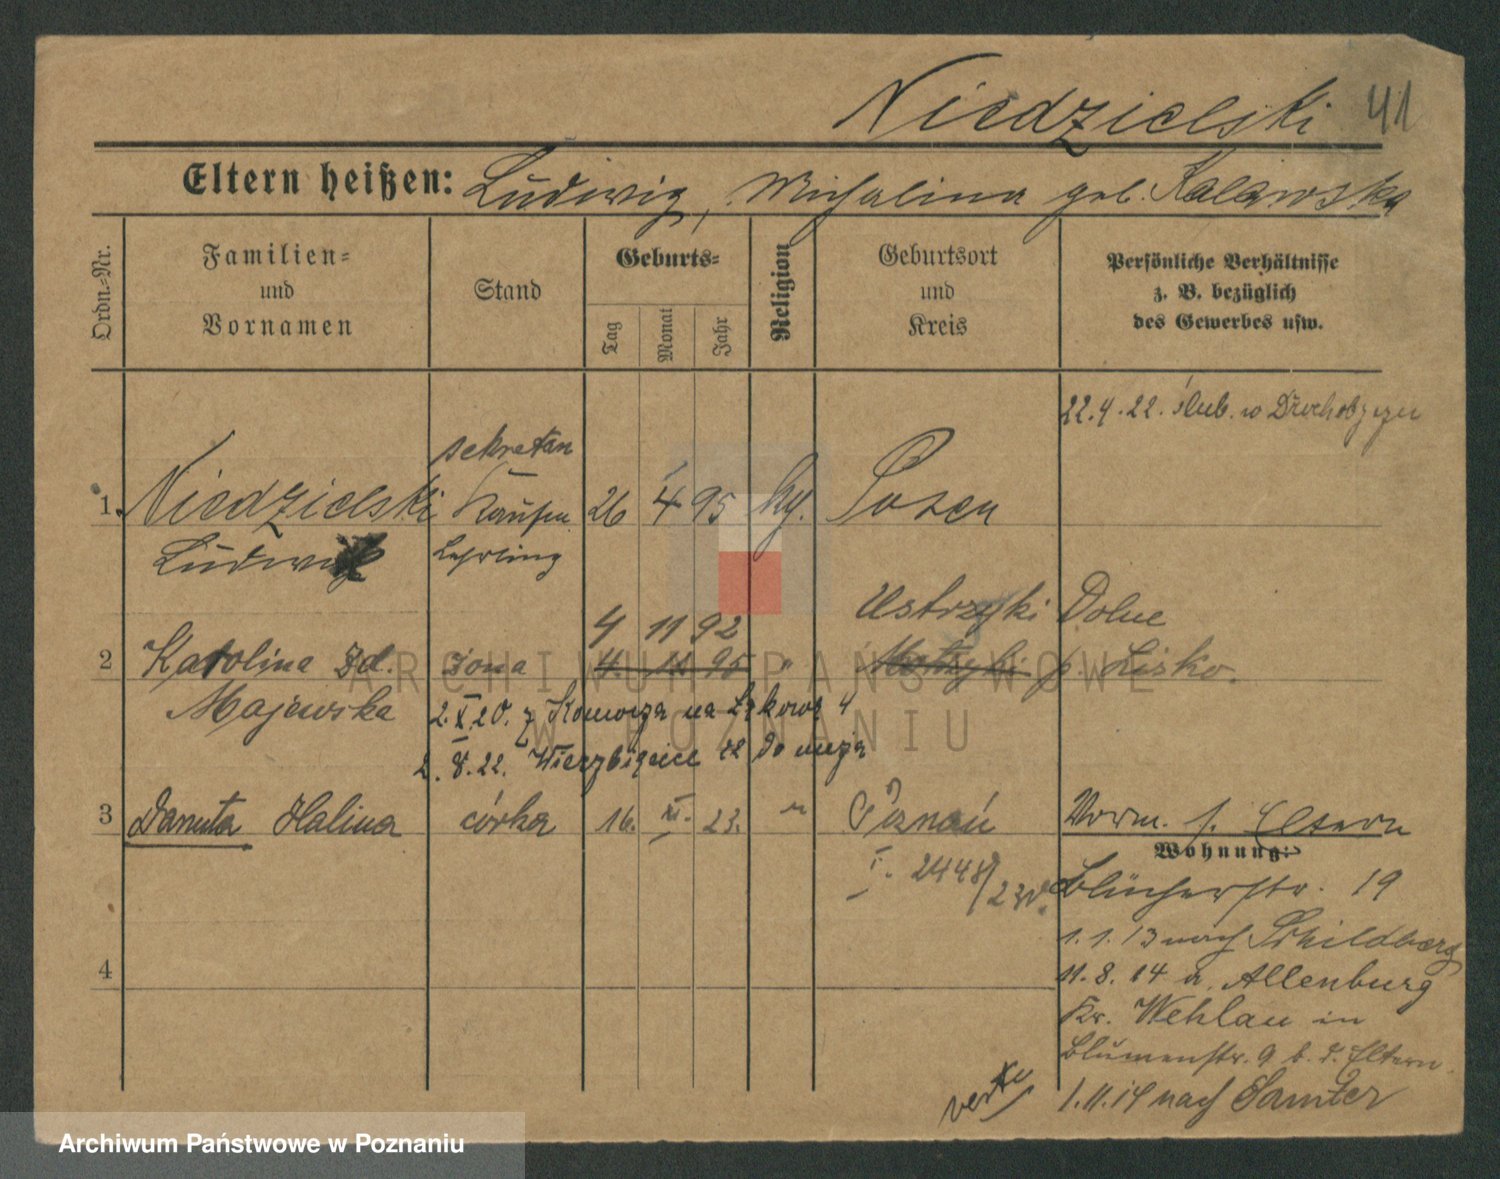 Niedzielski 41
Eltern heißen: Ludwig, Michalina geb. Kalawska
Ordn.-Nr.
Familien- und Vornamen
Stand
Geburts-
Tag
Monat
Jahr
Religion
Geburtsort und Kreis
Persönliche Verhältnisse
z. B. bezüglich
des Gewerbes usw.
22.4.22. ślub. w
sekretarz
1. Niedzielski Kaufm. 26 4 95 Posen
Ludwig Lehrling
4 11 92 Ustrzyki Dolne
2 Karolina Zd. żona 4. 11 95 " p. Lisko.
Majewska
2.X.20. z na Łąkową 4
2.8.22. Wierzbięcice 22 do męża
3 Danuta Halina córka 16. XI. 23. " Poznań
Vorm. s. Eltern
Wohnung:
I. 2448/23
Blücherstr. 19
1.1.13 nach Schildberg
4
11.8.14 n. Allenburg
Kr. Wehlau in
Blumenstr. 9 b. d. Eltern.
1.11.14 nach Samter
verte
ARCHIWUM PAŃSTWOWE
W POZNANIU
Archiwum Państwowe w Poznaniu